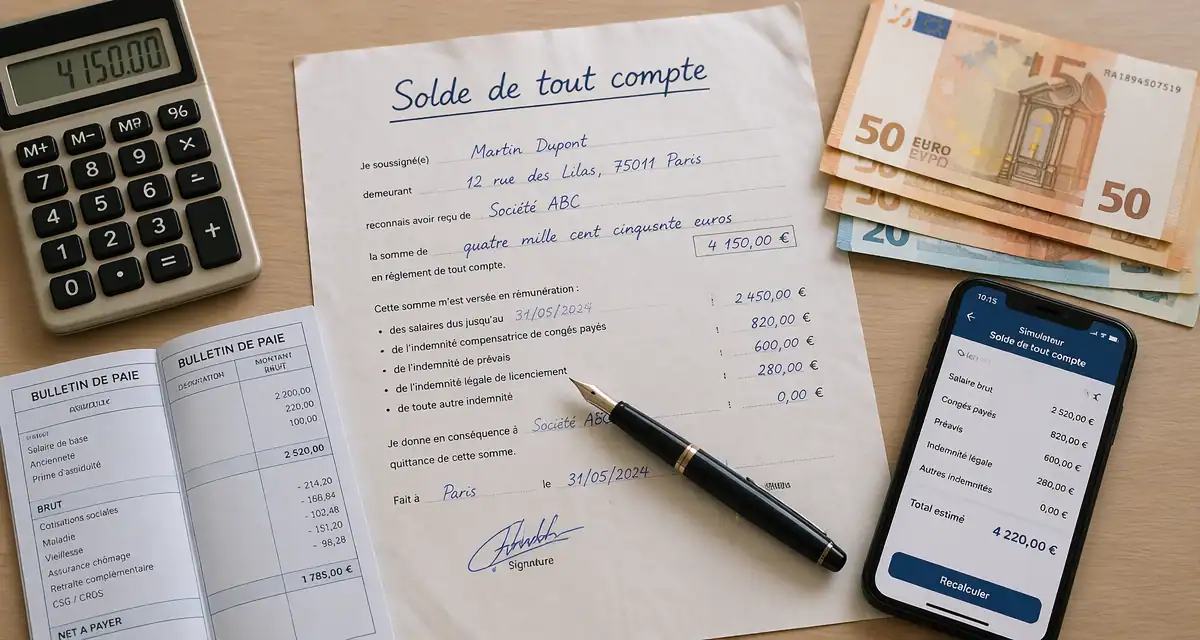 4150.00
M+
M-
%
7
8
9
×
4
5
6
1
2
3
+
0
=
Solde de tout compte
Je soussigné(e) Martin Dupont
demeurant 12 rue des Lilas, 75011 Paris
reconnais avoir reçu de Société ABC
la somme de quatre mille cent cinqusnte euros
4 150,00 €
en règlement de tout compte.
Cette somme m'est versée en rémunération :
• des salaires dus jusqu'au 31/05/2024 : 2 450,00 €
• de l'indemnité compensatrice de congés payés : 820,00 €
• de l'indemnité de prévais : 600,00 €
• de l'indemnité légale de licenciement : 280,00 €
• de toute autre indemnité : 0,00 €
Je donne en conséquence à Société ABC
quittance de cette somme.
Fait à Paris le 31/05/2024
Signnture
BULLETIN DE PAIE
Salaire de base
Ancienneté
Prime d'assiduité
BRUT
Cotisations sociales
Maladie
Vieillesse
Assurance chômage
Retraite complémentaire
CSG / CRDS
NET A PAYER
BULLETIN DE PAIE
MONTANT
BRUT
2 200,00
220,00
100,00
2 520,00
- 214,20
- 168,84
- 102,48
- 151,20
- 98,28
1 785,00 €
RA1894507519
50 EURO
50
20
10:15
Simulateur
Solde de tout compte
Salaire brut 2 520,00 €
Congés payés 820,00 €
Préavis 600,00 €
Indemnité légale 280,00 €
Autres indemnités 0,00 €
Total estimé 4 220,00 €
Recalculer